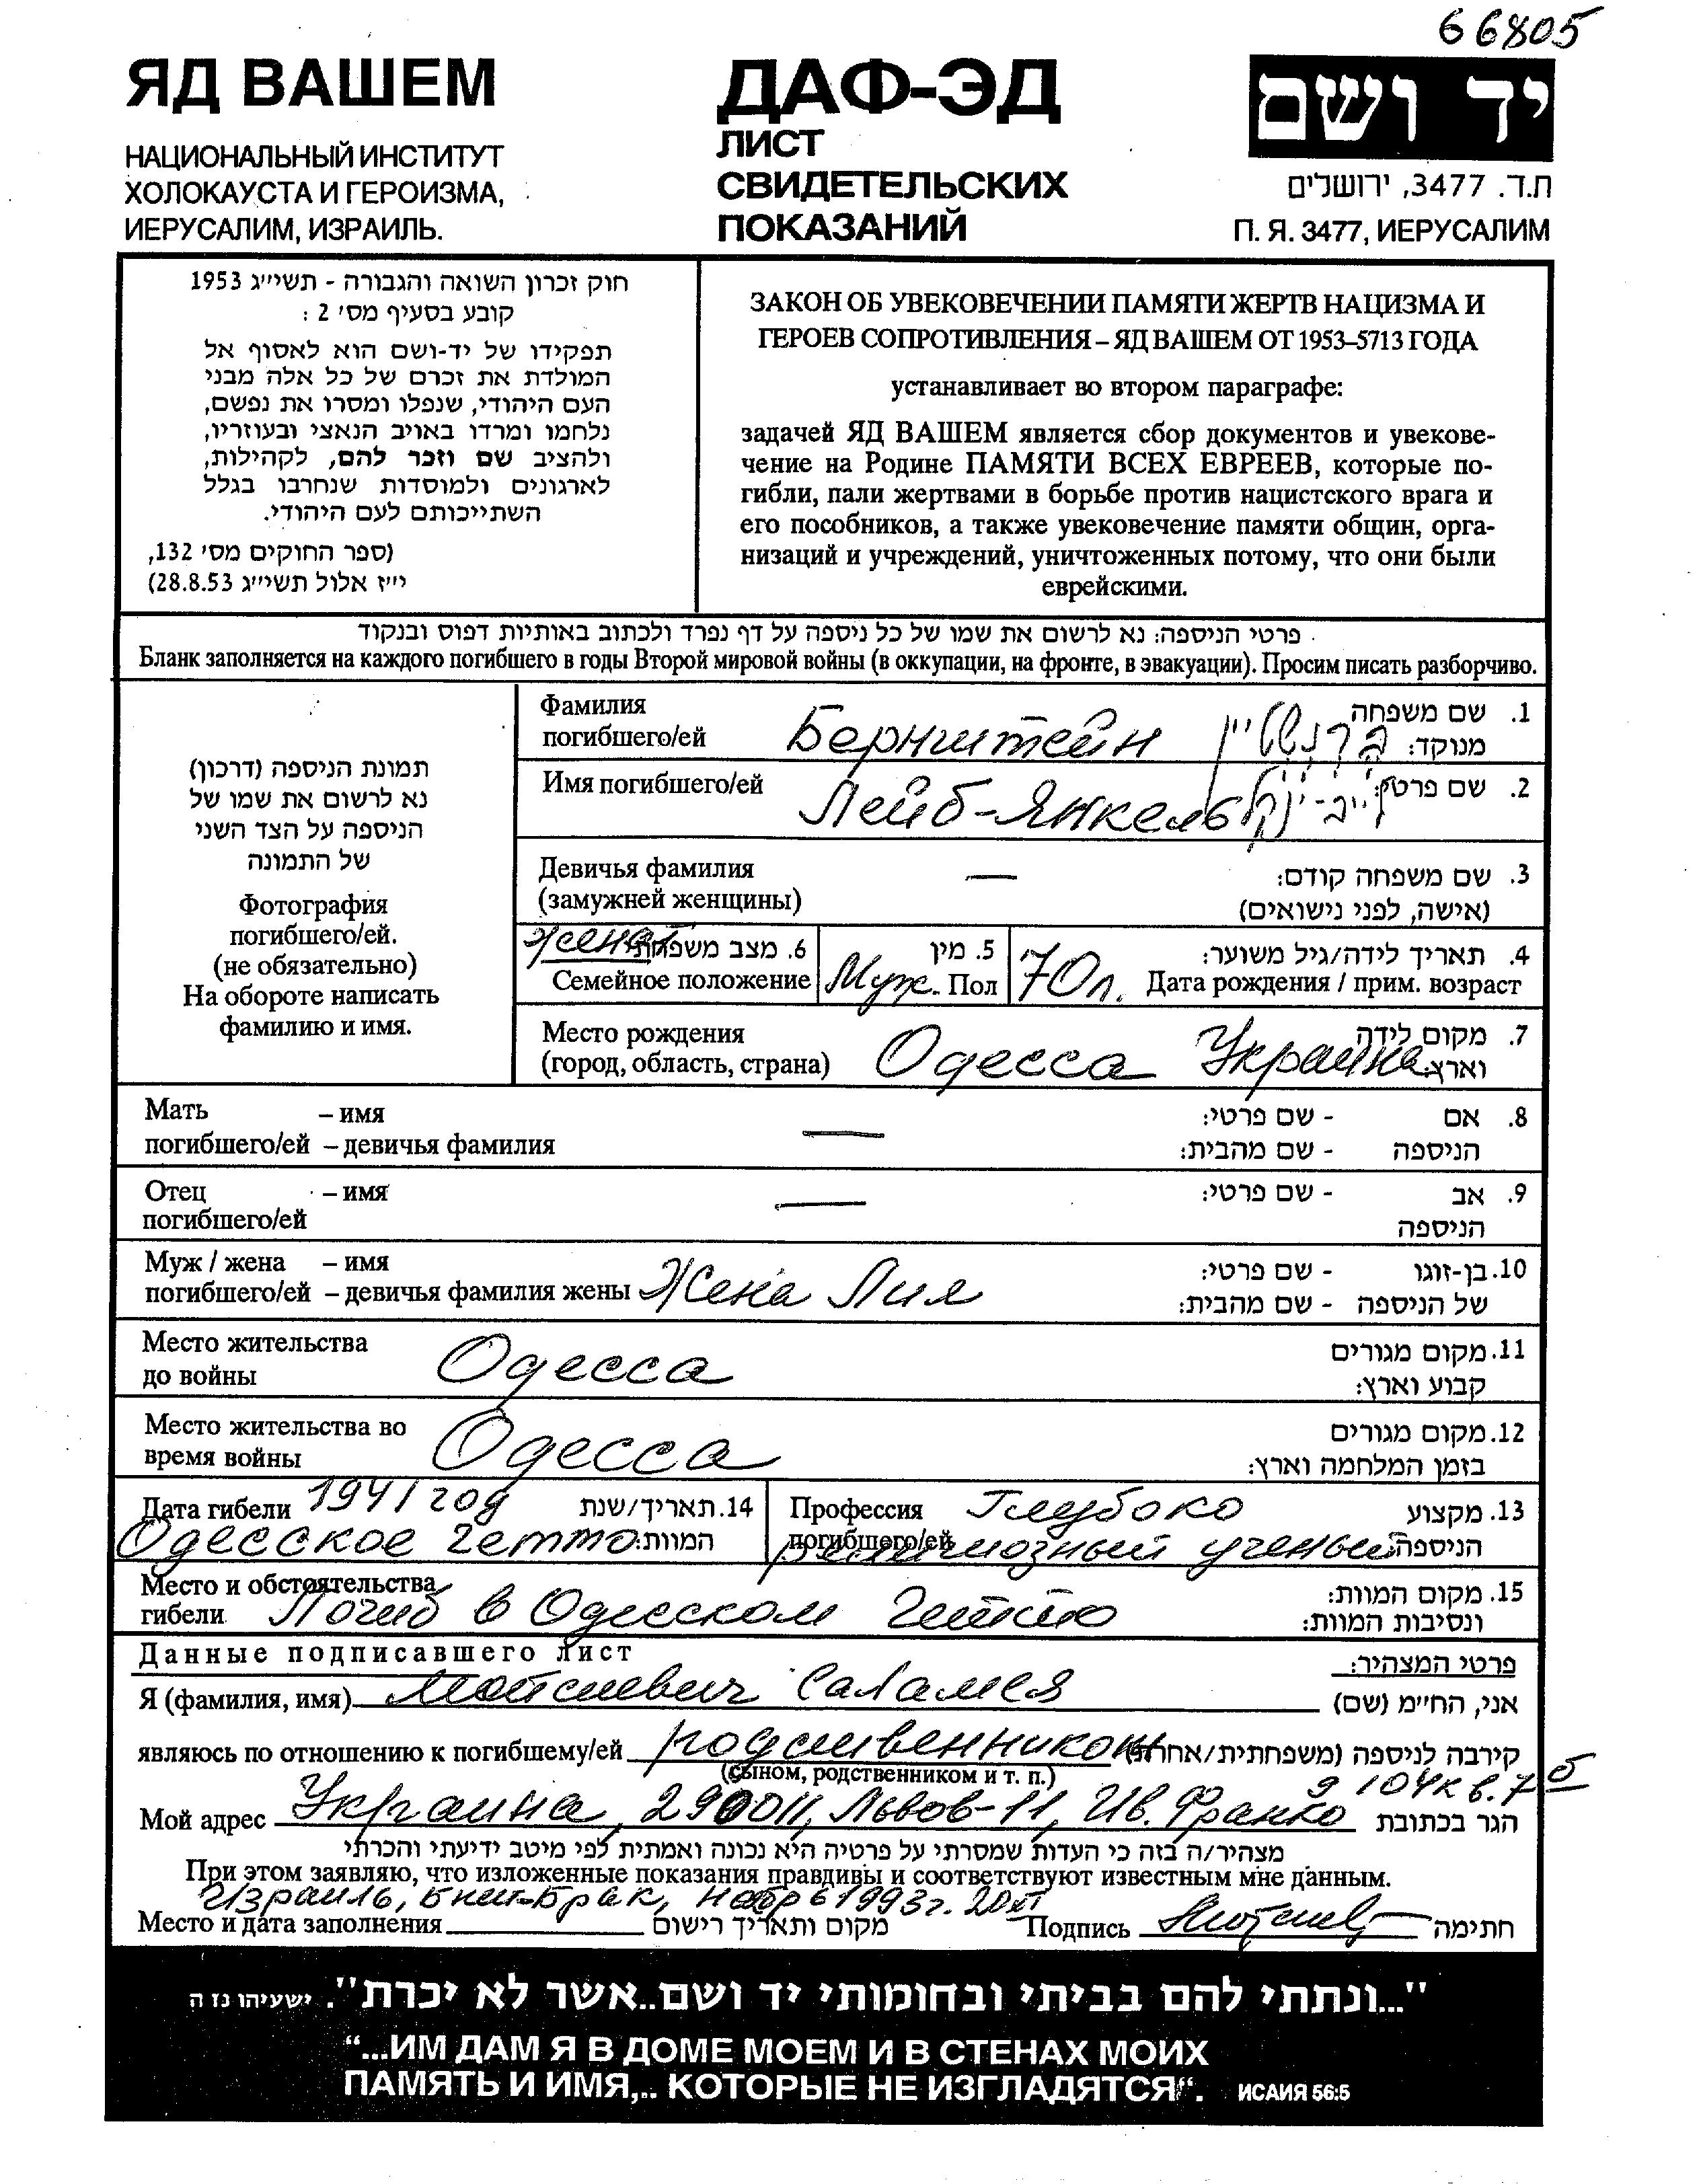 66805
ЯД ВАШЕМ
НАЦИОНАЛЬНЫЙ ИНСТИТУТ
ХОЛОКАУСТА И ГЕРОИЗМА,
ИЕРУСАЛИМ, ИЗРАИЛЬ.
ДАФ-ЭД
ЛИСТ
СВИДЕТЕЛЬСКИХ
ПОКАЗАНИЙ
יד ושם
ת.ד. 3477, ירושלים
П. Я. 3477, ИЕРУСАЛИМ
חוק זכרון השואה והגבורה - תשי״ג 1953
קובע בסעיף מס׳ 2 :
תפקידו של יד-ושם הוא לאסוף אל
המולדת את זכרם של כל אלה מבני
העם היהודי, שנפלו ומסרו את נפשם,
נלחמו ומרדו באויב הנאצי ובעוזריו,
ולהציב שם וזכר להם, לקהילות,
לארגונים ולמוסדות שנחרבו בגלל
השתייכותם לעם היהודי.
(ספר החוקים מס׳ 132,
י״ז אלול תשי״ג 28.8.53)
ЗАКОН ОБ УВЕКОВЕЧЕНИИ ПАМЯТИ ЖЕРТВ НАЦИЗМА И
ГЕРОЕВ СОПРОТИВЛЕНИЯ – ЯД ВАШЕМ ОТ 1953–5713 ГОДА
устанавливает во втором параграфе:
задачей ЯД ВАШЕМ является сбор документов и увекове-
чение на Родине ПАМЯТИ ВСЕХ ЕВРЕЕВ, которые по-
гибли, пали жертвами в борьбе против нацистского врага и
его пособников, а также увековечение памяти общин, орга-
низаций и учреждений, уничтоженных потому, что они были
еврейскими.
פרטי הניספה: נא לרשום את שמו של כל ניספה על דף נפרד ולכתוב באותיות דפוס ובנקוד
Бланк заполняется на каждого погибшего в годы Второй мировой войны (в оккупации, на фронте, в эвакуации). Просим писать разборчиво.
תמונת הניספה (דרכון)
נא לרשום את שמו של
הניספה על הצד השני
של התמונה
Фотография
погибшего/ей.
(не обязательно)
На обороте написать
фамилию и имя.
Фамилия погибшего/ей Бернштейн ברנשטיין 1. שם משפחה מנוקד:
Имя погибшего/ей Лейб-Янкель לייב-ינקל 2. שם פרטי:
Девичья фамилия (замужней женщины) — 3. שם משפחה קודם: (אישה, לפני נישואים)
женат 6. מצב משפחתי Семейное положение
5. מין Муж. Пол
70 л. 4. תאריך לידה/גיל משוער: Дата рождения / прим. возраст
Место рождения (город, область, страна) Одесса Украина 7. מקום לידה וארץ:
Мать – имя — 8. אם - שם פרטי:
погибшего/ей – девичья фамилия הניספה - שם מהבית:
Отец – имя — 9. אב - שם פרטי:
погибшего/ей הניספה
Муж / жена – имя 10. בן-זוגו - שם פרטי:
погибшего/ей – девичья фамилия жены Жена Лия של הניספה - שם מהבית:
Место жительства до войны Одесса 11. מקום מגורים קבוע וארץ:
Место жительства во время войны Одесса 12. מקום מגורים בזמן המלחמה וארץ:
Дата гибели 1941 год 14. תאריך/שנת
Одесское гетто המוות:
Профессия Глубоко 13. מקצוע
погибшего/ей религиозный ученый הניספה:
Место и обстоятельства 15. מקום המוות:
гибели Погиб в Одесском гетто ונסיבות המוות:
Данные подписавшего лист פרטי המצהיר:
Я (фамилия, имя) Саламея אני, הח״מ (שם)
являюсь по отношению к погибшему/ей родственником קירבה לניספה (משפחתית/אחרת)
(сыном, родственником и т. п.)
Мой адрес Украина, 290011, Львов-11, Ив. Франко д 104 кв. 7б הגר בכתובת
מצהיר/ה בזה כי העדות שמסרתי על פרטיה היא נכונה ואמתית לפי מיטב ידיעתי והכרתי
При этом заявляю, что изложенные показания правдивы и соответствуют известным мне данным.
Израиль, Бней-Брак, 1993г.
Место и дата заполнения מקום ותאריך רישום Подпись חתימה
"...ונתתי להם בביתי ובחומותי יד ושם..אשר לא יכרת". ישעיהו נז ה
“...ИМ ДАМ Я В ДОМЕ МОЕМ И В СТЕНАХ МОИХ
ПАМЯТЬ И ИМЯ,.. КОТОРЫЕ НЕ ИЗГЛАДЯТСЯ“. ИСАИЯ 56:5